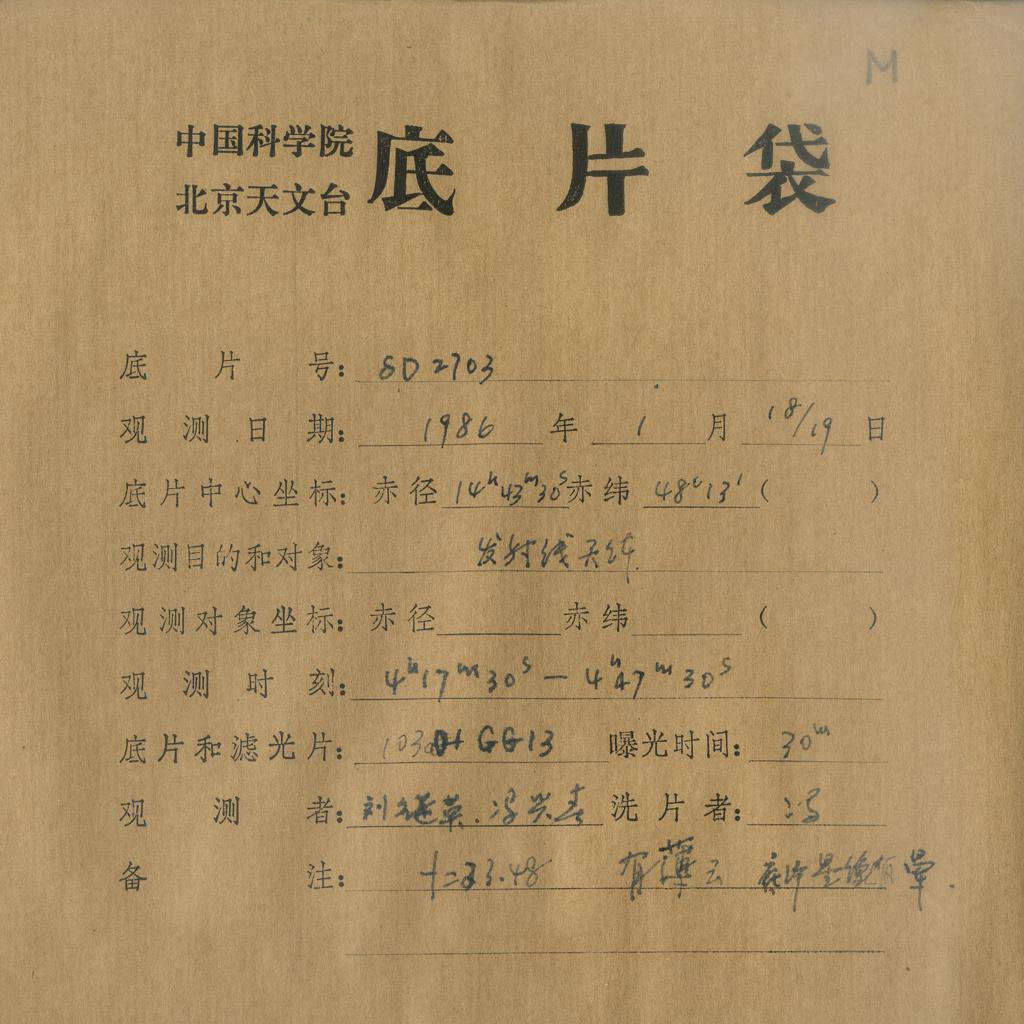 M
中国科学院
北京天文台
底片袋
底片号: SD2703
观测日期: 1986年1月18/19日
底片中心坐标: 赤径14h43m30s赤纬48°13′( )
观测目的和对象: 发射线天体
观测对象坐标: 赤径 赤纬 ( )
观测时刻: 4h17m30s—4h47m30s
底片和滤光片: 103aO+GG13 曝光时间: 30m
观测者: 刘继英.冯兴春 洗片者: 冯
备注: 有薄云 底片星像有晕.